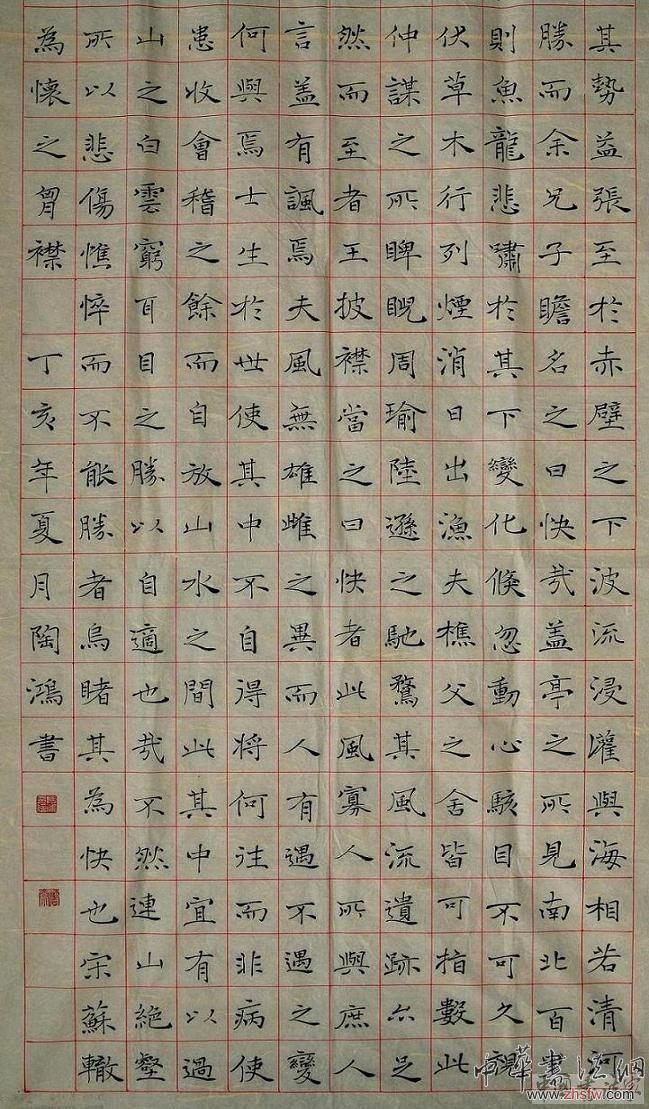 其勢益張至於赤壁之下波流浸灌與海相若清河
勝而余兄子瞻名之曰快哉盖亭之所見南北百晝
則魚龍悲嘯於其下變化倏忽動心駭目不可久觀
伏草木行列煙消日出漁夫樵父之舍皆可指數此
仲謀之所睥睨周瑜陸遜之馳騖其風流遺跡亦足
然而至者王披襟當之曰快者此風寡人所與庶人
言盖有諷焉夫風無雄雌之異而人有遇不遇之變
何與焉士生於世使其中不自得將何往而非病使
患收會稽之餘而自放山水之間此其中宜有以過
山之白雲窮耳目之勝以自適也哉不然連山絕壑
所以悲傷憔悴而不能勝者烏睹其為快也宋蘇轍
為懷之胷襟 丁亥年夏月陶鴻書
中華書法網
www.zhsfw.com